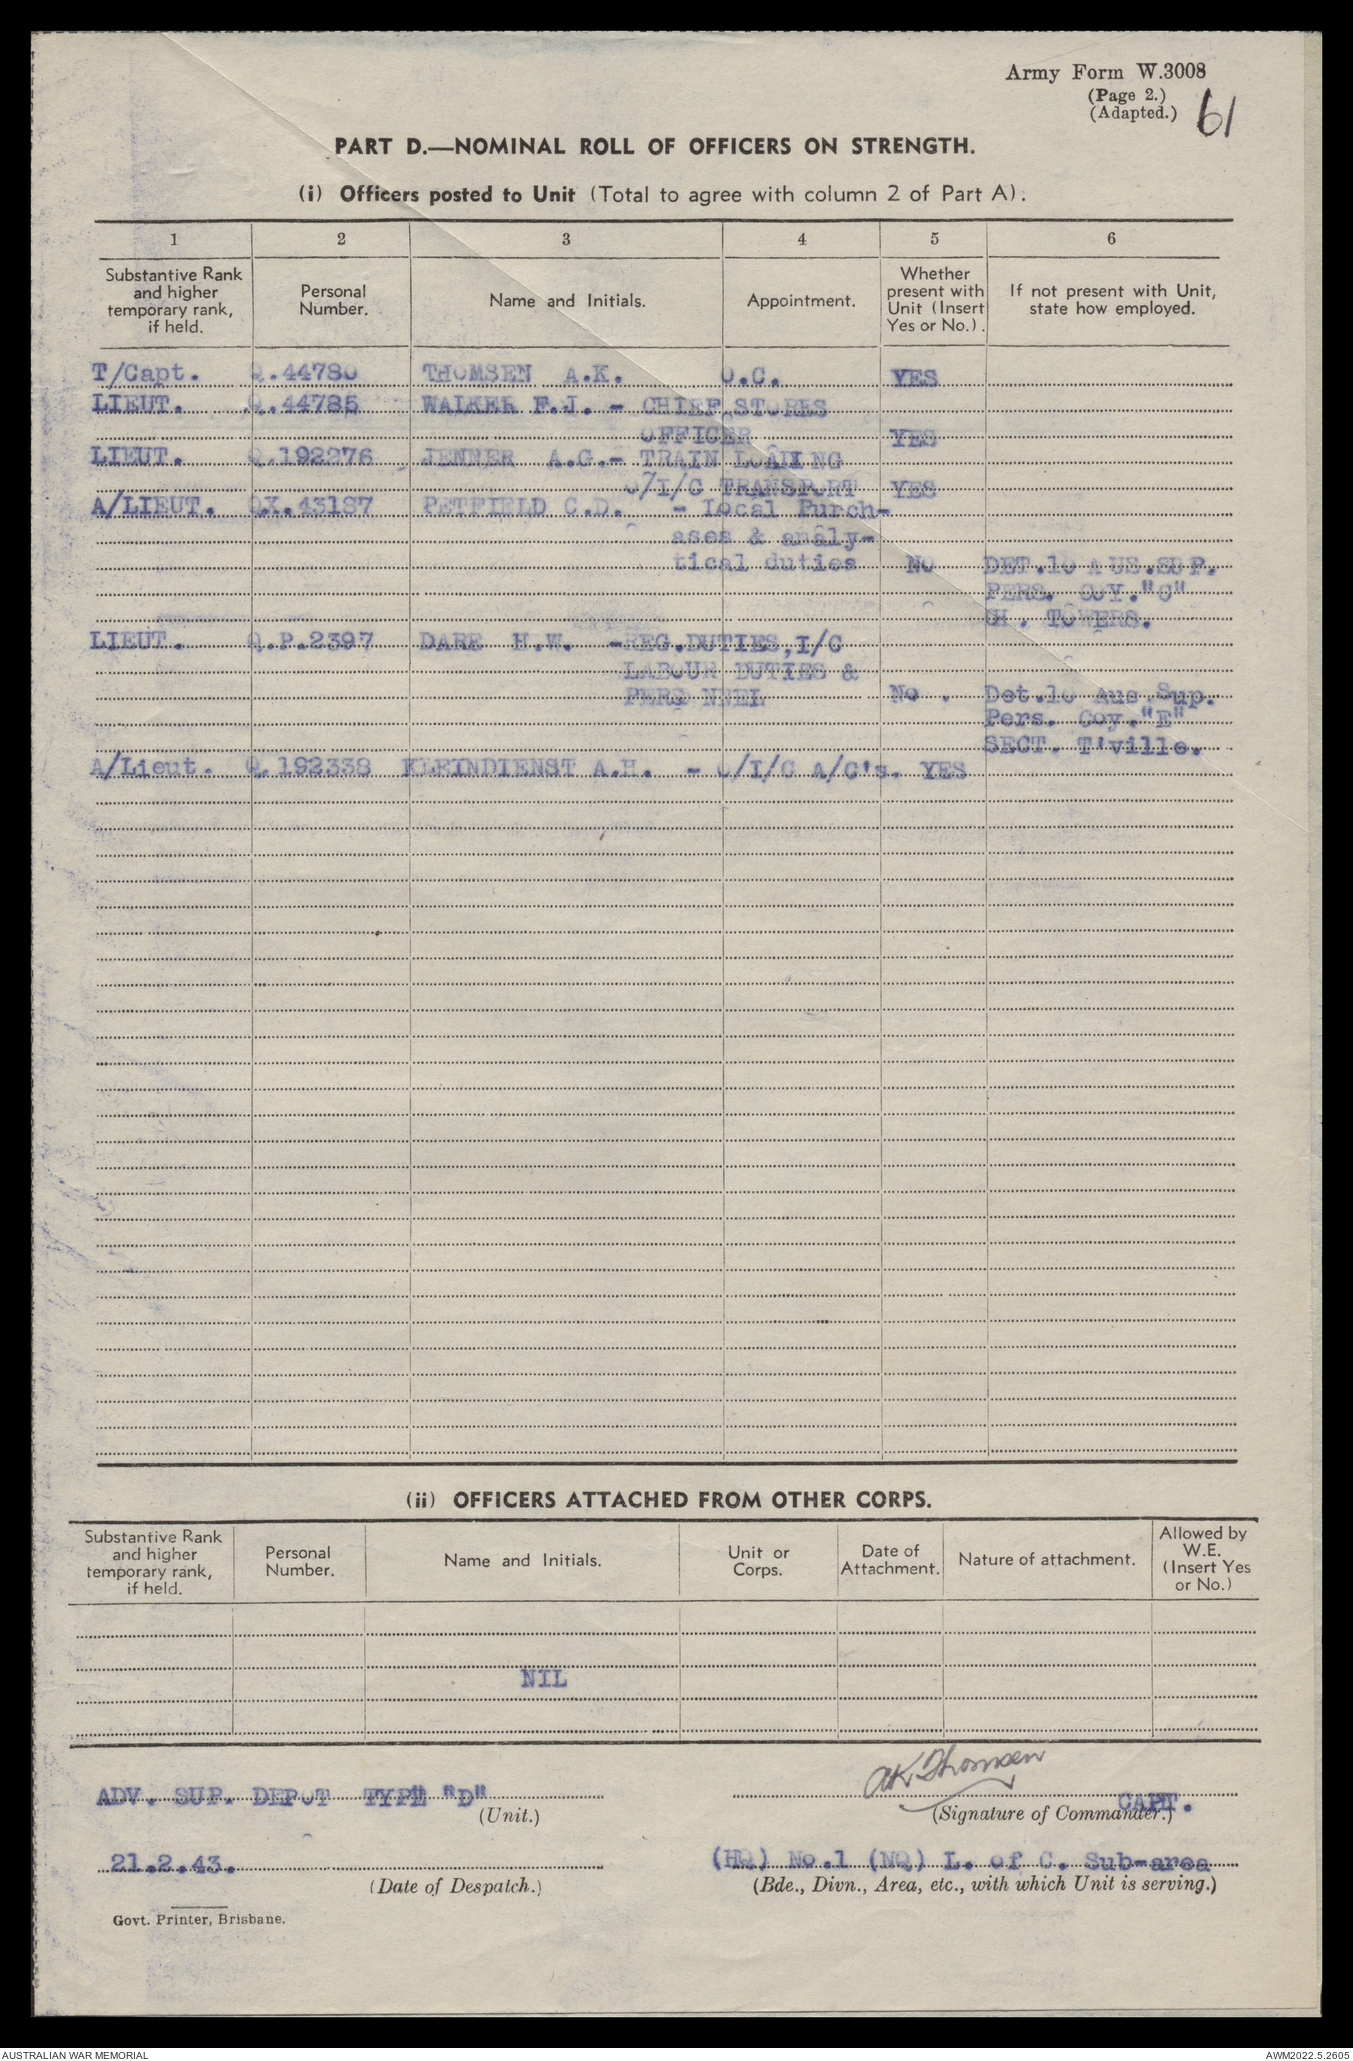 Army Form W.3008
(Page 2.)
(Adapted.)
61
PART D.—NOMINAL ROLL OF OFFICERS ON STRENGTH.
(i) Officers posted to Unit (Total to agree with column 2 of Part A).
1 2 3 4 5 6
Substantive Rank and higher temporary rank, if held. Personal Number. Name and Initials. Appointment. Whether present with Unit (Insert Yes or No.). If not present with Unit, state how employed.
T/Capt. Q.44780 THOMSEN A.K. O.C. YES
LIEUT. Q.44785 WALKER F.J. - CHIEF STORES
OFFICER YES
LIEUT. Q.192276 JENNER A.G.- TRAIN LOADING
O/I/C TRANSPORT YES
A/LIEUT. QX.43187 PETFIELD C.D. - Local Purch-
ases & analy-
tical duties NO DET.10 AUS.SUP.
PERS. COY."C"
CH. TOWERS.
LIEUT. Q.P.2397 DARE H.W. -REG.DUTIES,I/C
LABOUR DUTIES &
PERSONNEL No . Det.10 Aus.Sup.
Pers. Coy."E"
SECT. T'ville.
A/Lieut. Q.192338 KLEINDIENST A.H. - O/I/C A/C's. YES
(ii) OFFICERS ATTACHED FROM OTHER CORPS.
Substantive Rank and higher temporary rank, if held. Personal Number. Name and Initials. Unit or Corps. Date of Attachment. Nature of attachment. Allowed by W.E. (Insert Yes or No.)
NIL
AK Thomsen
ADV. SUP. DEPOT TYPE "D" CAPT.
(Unit.) (Signature of Commander.)
21.2.43. (HQ) No.1 (NQ) L. of C. Sub-area
(Date of Despatch.) (Bde., Divn., Area, etc., with which Unit is serving.)
Govt. Printer, Brisbane.
AUSTRALIAN WAR MEMORIAL AWM2022.5.2605